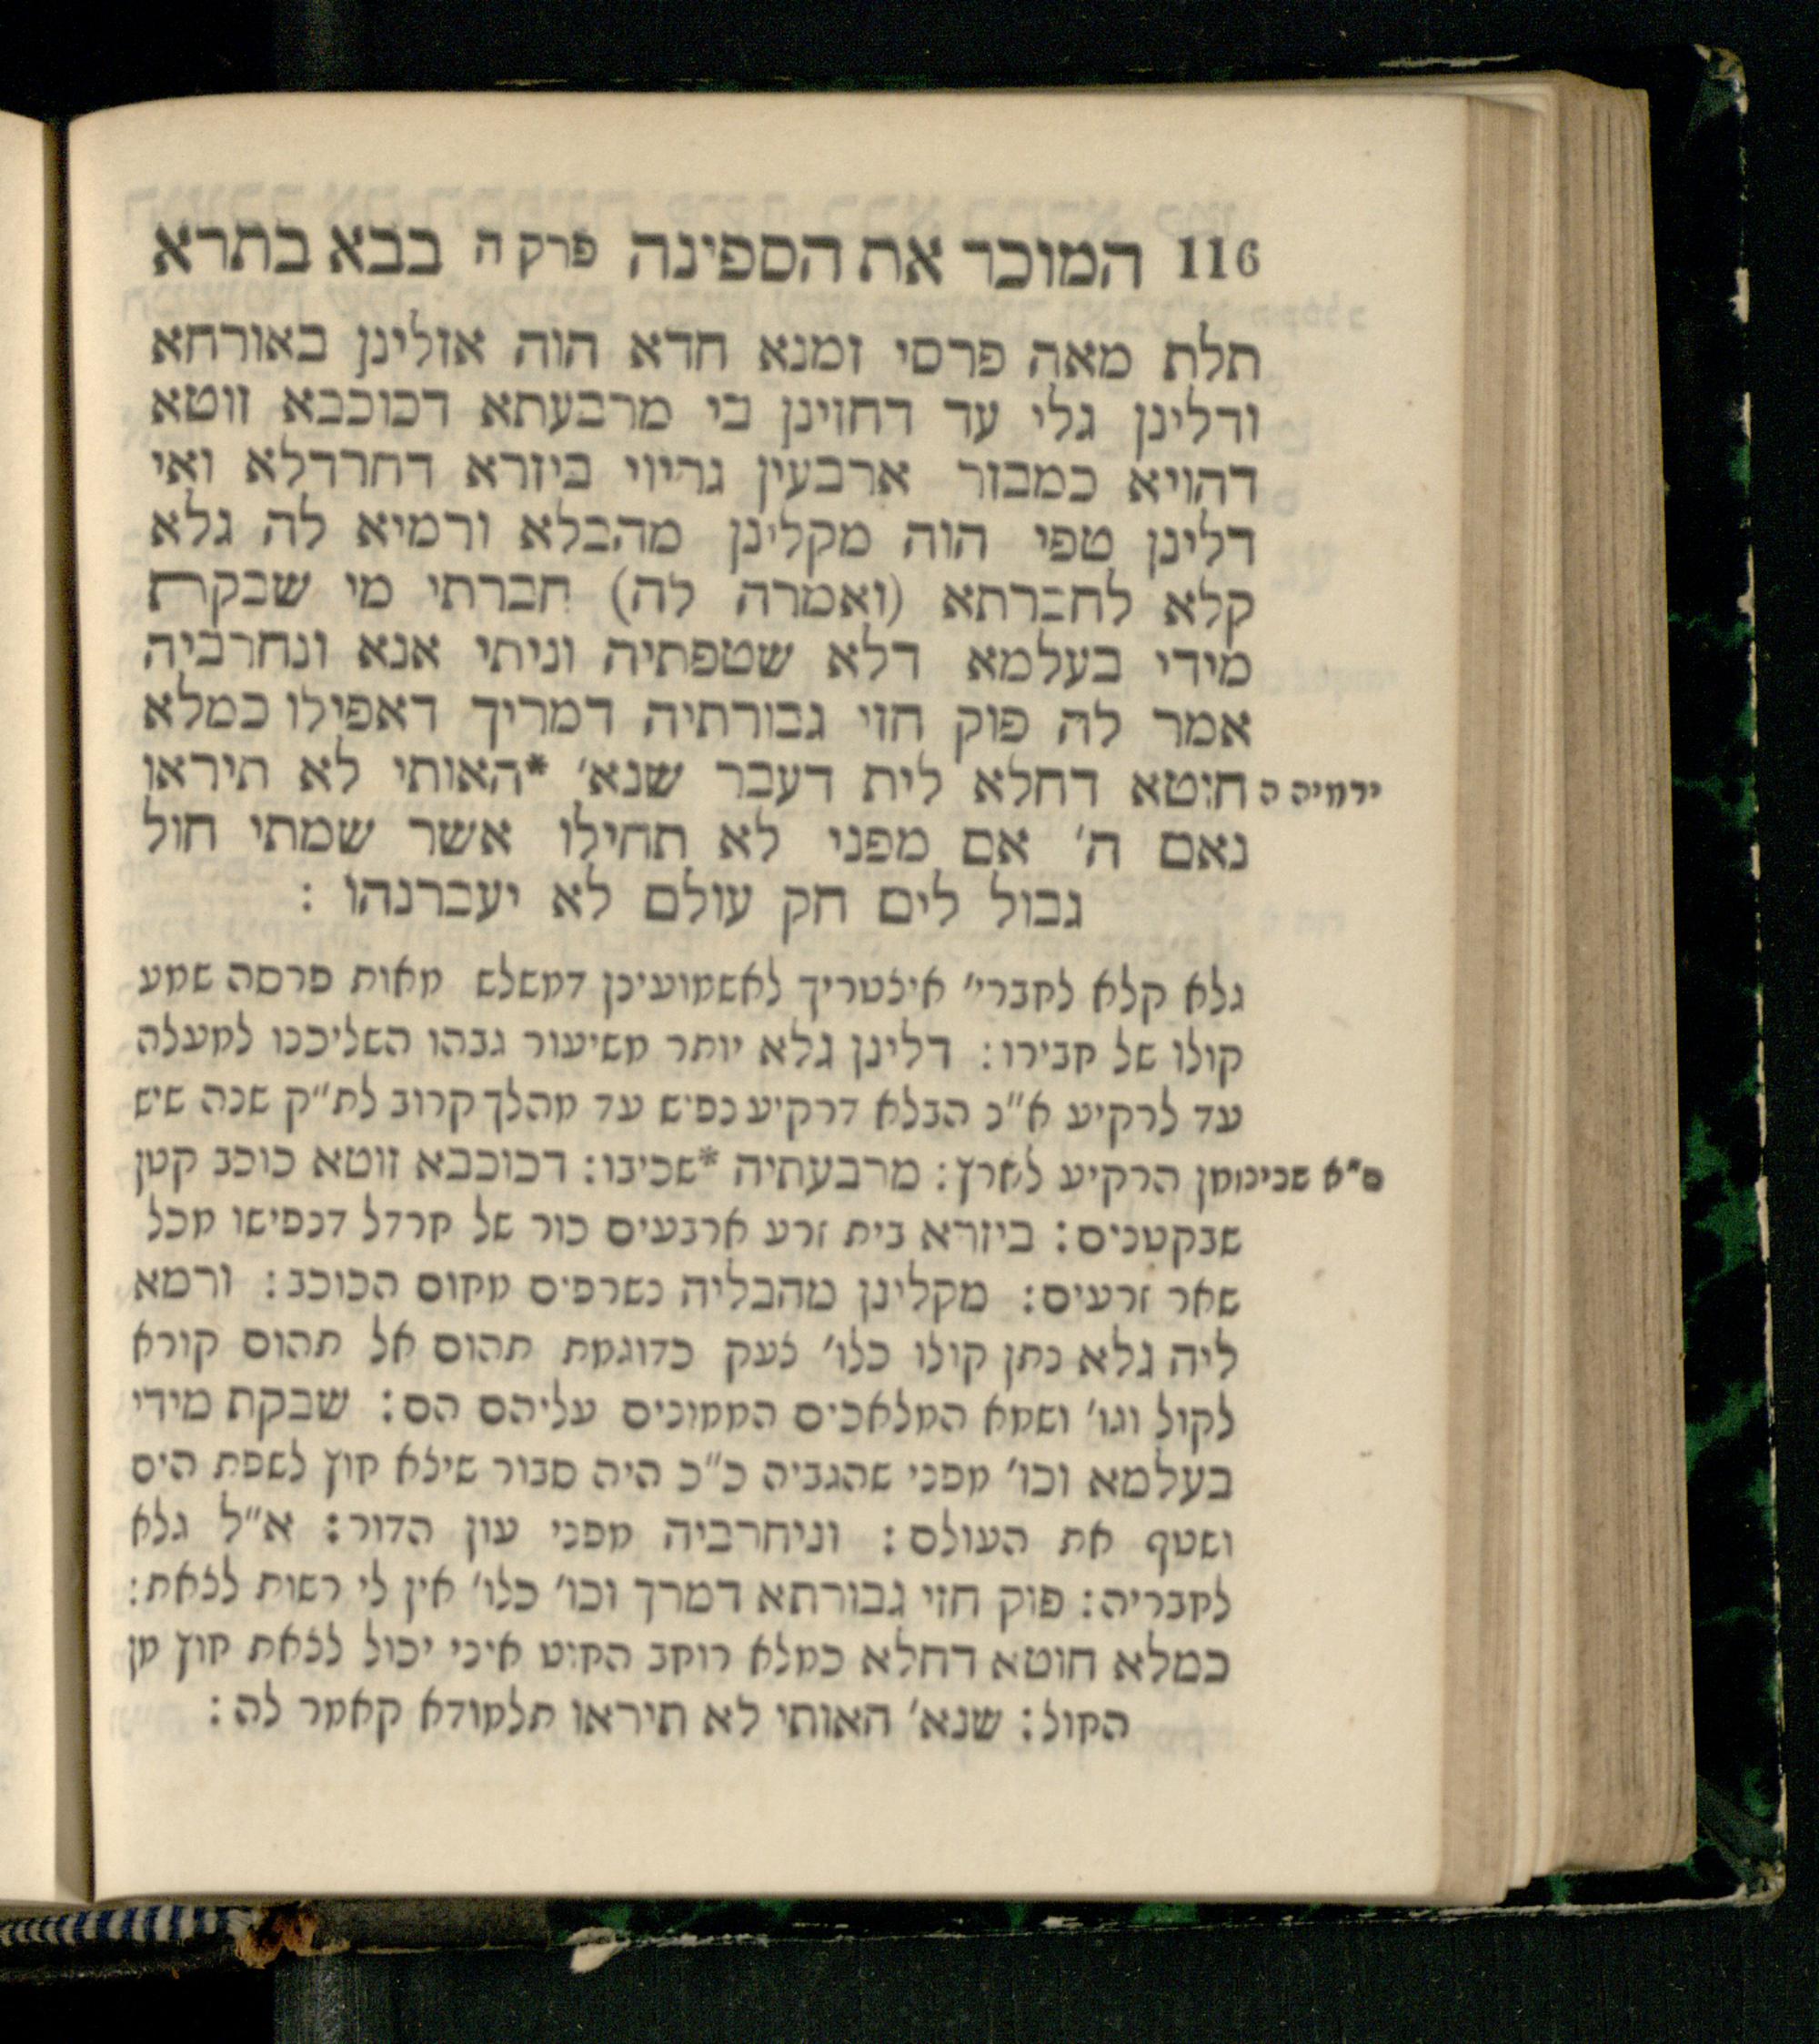 116 המוכר את הספינה פרק ה בבא בתרא
תלת מאה פרסי זמנא חדא הוה אזלינן באורחא
ודלינן גלי עד דחזינן בי מרבעתא דכוכבא זוטא
דהויא כמבזר ארבעין גריוי ביזרא דחרדלא ואי
דלינן טפי הוה מקלינן מהבלא ורמיא לה גלא
קלא לחברתא (ואמרה לה) חברתי מי שבקת
מידי בעלמא דלא שטפתיה וניתי אנא ונחרביה
אמר לה פוק חזי גבורתיה דמריך דאפילו כמלא
ירמיה ה חוטא דחלא לית דעבר שנא׳ *האותי לא תיראו
נאם ה׳ אם מפני לא תחילו אשר שמתי חול
גבול לים חק עולם לא יעברנהו :
גלא קלא לחברי׳ איצטריך לאשמועינן דמשלש מאות פרסה שמע
קולו של חבירו : דלינן גלא יותר משיעור גבהו השליכנו למעלה
עד לרקיע א״נ הבלא דרקיע נפיש עד מהלך קרוב לת״ק שנה שיש
ס״א שכיבתו מן הרקיע לארץ : מרבעתיה *שכיבו : דכוכבא זוטא כוכב קטן
שבקטנים : ביזרא בית זרע ארבעים כור של חרדל דנפישו מכל
שאר זרעים : מקלינן מהבליה נשרפים מחום הכוכב : ורמא
ליה גלא נתן קולו כלו׳ צעק כדוגמת תהום אל תהום קורא
לקול וגו׳ ושמא המלאכים הממונים עליהם הם : שבקת מידי
בעלמא וכו׳ מפני שהגביה כ״כ היה סבור שיצא חוץ לשפת הים
ושטף את העולם : וניחרביה מפני עון הדור : א״ל גלא
לחבריה : פוק חזי גבורתא דמרך וכו׳ כלו׳ אין לי רשות לצאת :
כמלא חוטא דחלא כמלא רוחב החוט איני יכול לצאת חוץ מן
החול : שנא׳ האותי לא תיראו תלמודא קאמר לה :